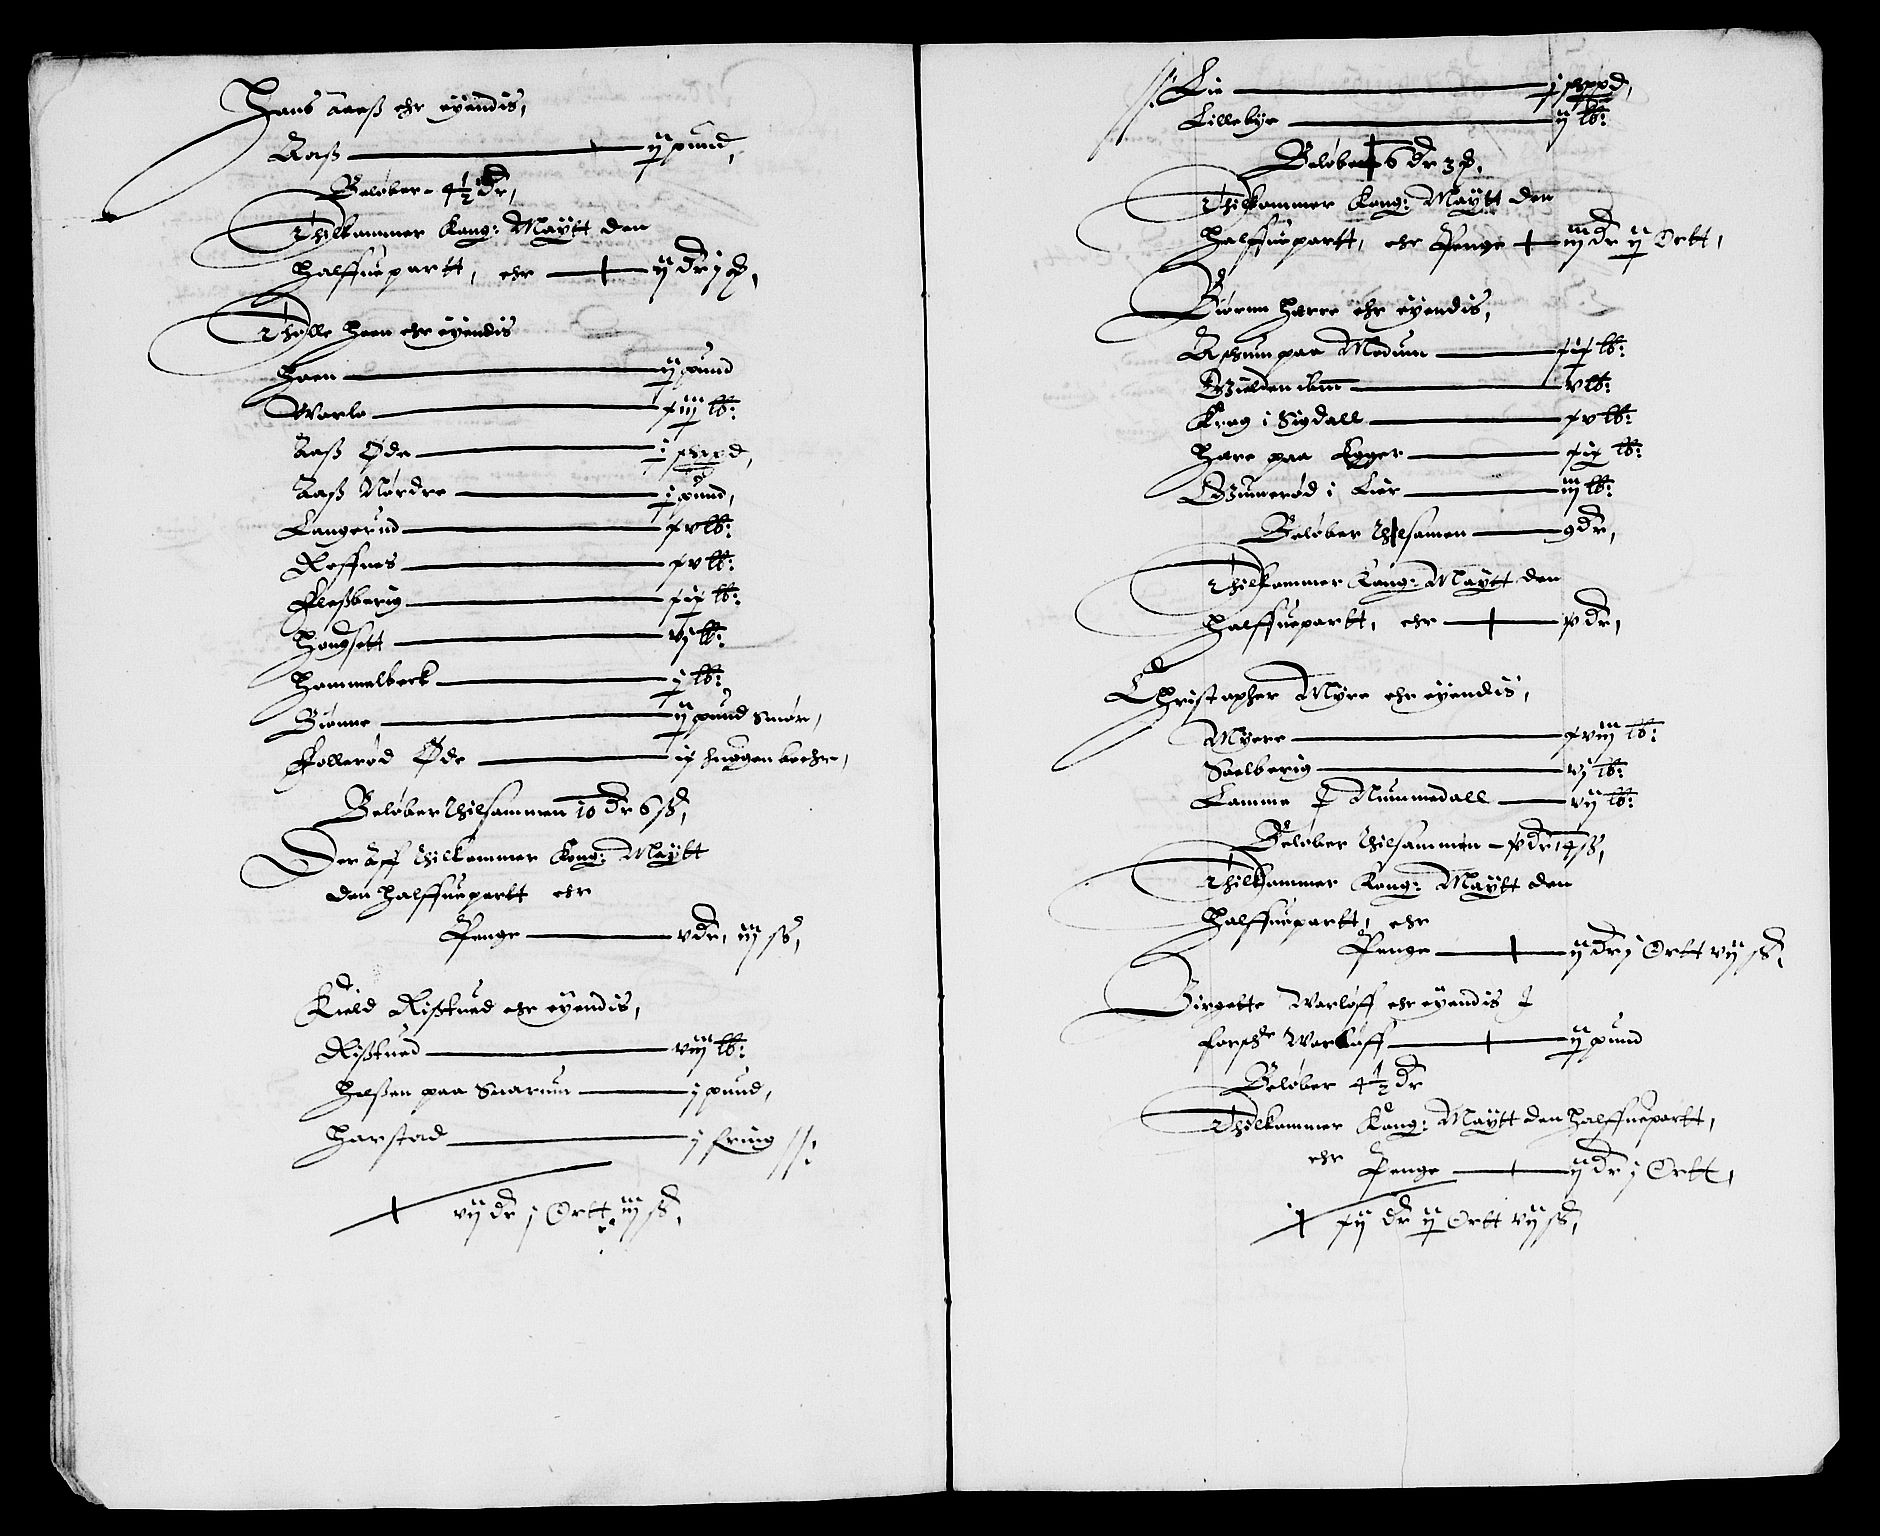 Hans Aaeß ehr eyendis,
Aaß — ij pund,
Beløber - 4½ dr,
Thilkommer Kong: Maytt den
halffuepartt, ehr — ij dr j ß,
Tholle Hoen ehr eyendis
Hoen — ij pund
Warlo — xiij lb:
Aaß Øde — j
Aaß Nørdre — j pund,
Langerud — xv lb:
Reffnes — xv lb:
Fleßberig — xix lb:
Hougsett — vj lb:
Hammelbeck — j lb:
Biønne — ij pund Smør,
Follerød Øde — ix huggen beehr,
Beløber thilsammen 10 dr 6 ß,
Der aff thilkommer Kong: Maytt
den halffuepartt ehr
Penge — v dr, iij ß,
Kield Rißtued ehr eyendis,
Rißtued — viij lb:
Halßen paa Snarum — j pund,
Harstad — j fring //:
vij dr j Ortt iij ß,
//: Lie — j
Lillebye — ij lb:
Beløber 6 dr 3
Thilkommer Kong: Maytt den
halffuepartt, ehr Penge — iij dr ij Ortt,
Biørnn Harre ehr eyendis,
Aschum paa Modum — xix lb:
ibm — v lb:
Krog i Sigdall — xv lb:
Hare paa Egger — xix lb:
Gunnerød i Lier — iij lb:
Beløber thilsamen — 9 dr,
Thilkommer Kong: Maytt den
halffuepartt, ehr — dr,
Christopher Myre ehr eyendis,
Myere — xviij lb:
Soelberig — vj lb:
Lamme Nummedall — vij lb:
Beløber thilsammen - dr 14 ß,
Thilkommer Kong: Maytt den
halffuepartt, ehr
Penge — ij dr j Ortt vij ß,
Birgette Warloff ehr eyendis i
forsche Warloff — ij pund
Beløber 4½ dr
Thilkommer Kong: Maytt den halffuepartt,
ehr Penge — ij dr j Ortt,
xij dr ij Ortt vij ß,